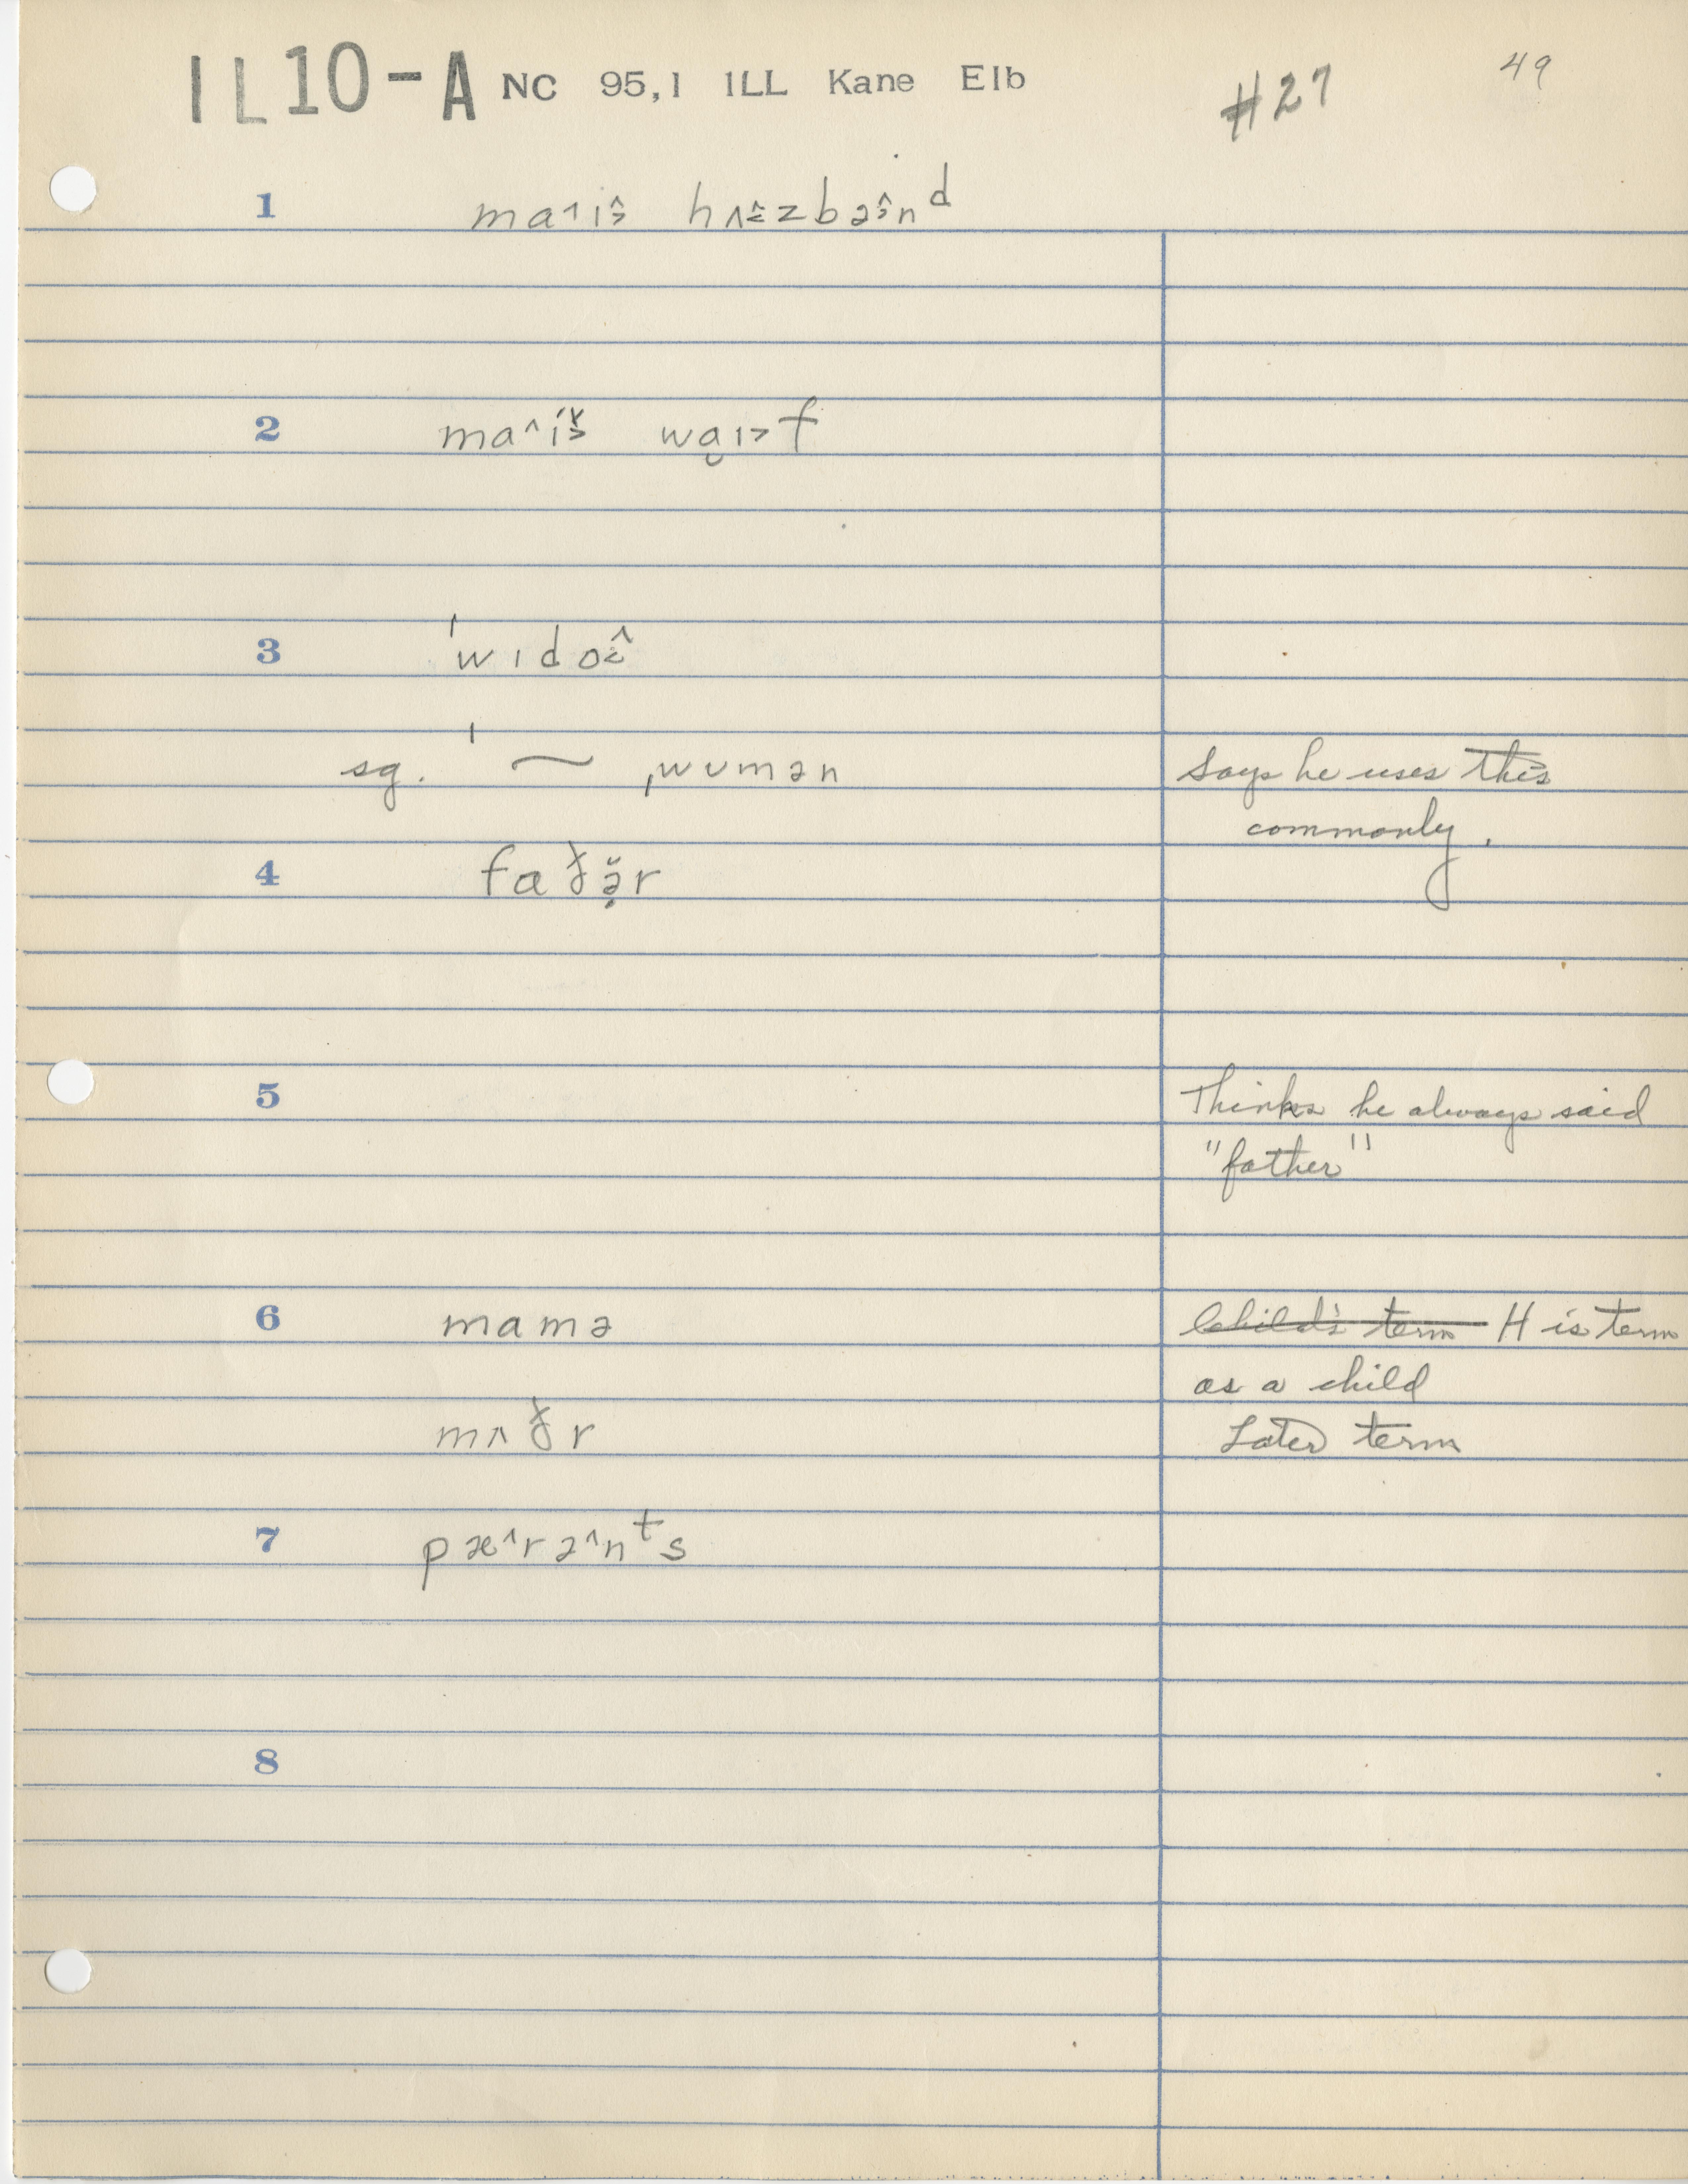 IL10-A NC 95,1 ILL Kane Elb #27 49
1 maˑ˄i˄˃ hʌ˄˂zbə˄˃nᵈ
2 ma˄i˅˃ wa̯ɪ˃f
3 ˈwɪdo˂˄
sg. ˈ~ ˌwʊmən Says he uses this
commonly.
4 faðə̣̆r
5 Thinks he always said
"father"
6 mamə ~~Child's term~~ His term
as a child
mʌðr Later term
7 pæ˄rə˄nᵗs
8